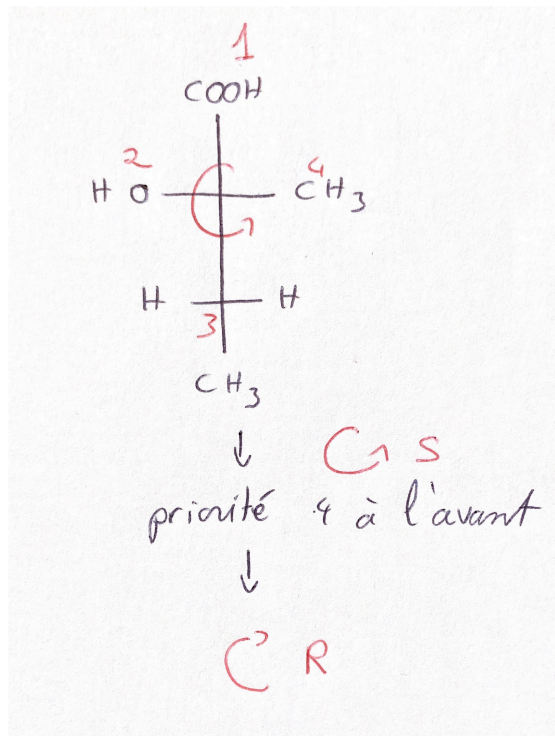 1
COOH
2 4
HO CH3
H H
3
CH3
↓
S
priorité 4 à l'avant
↓
R